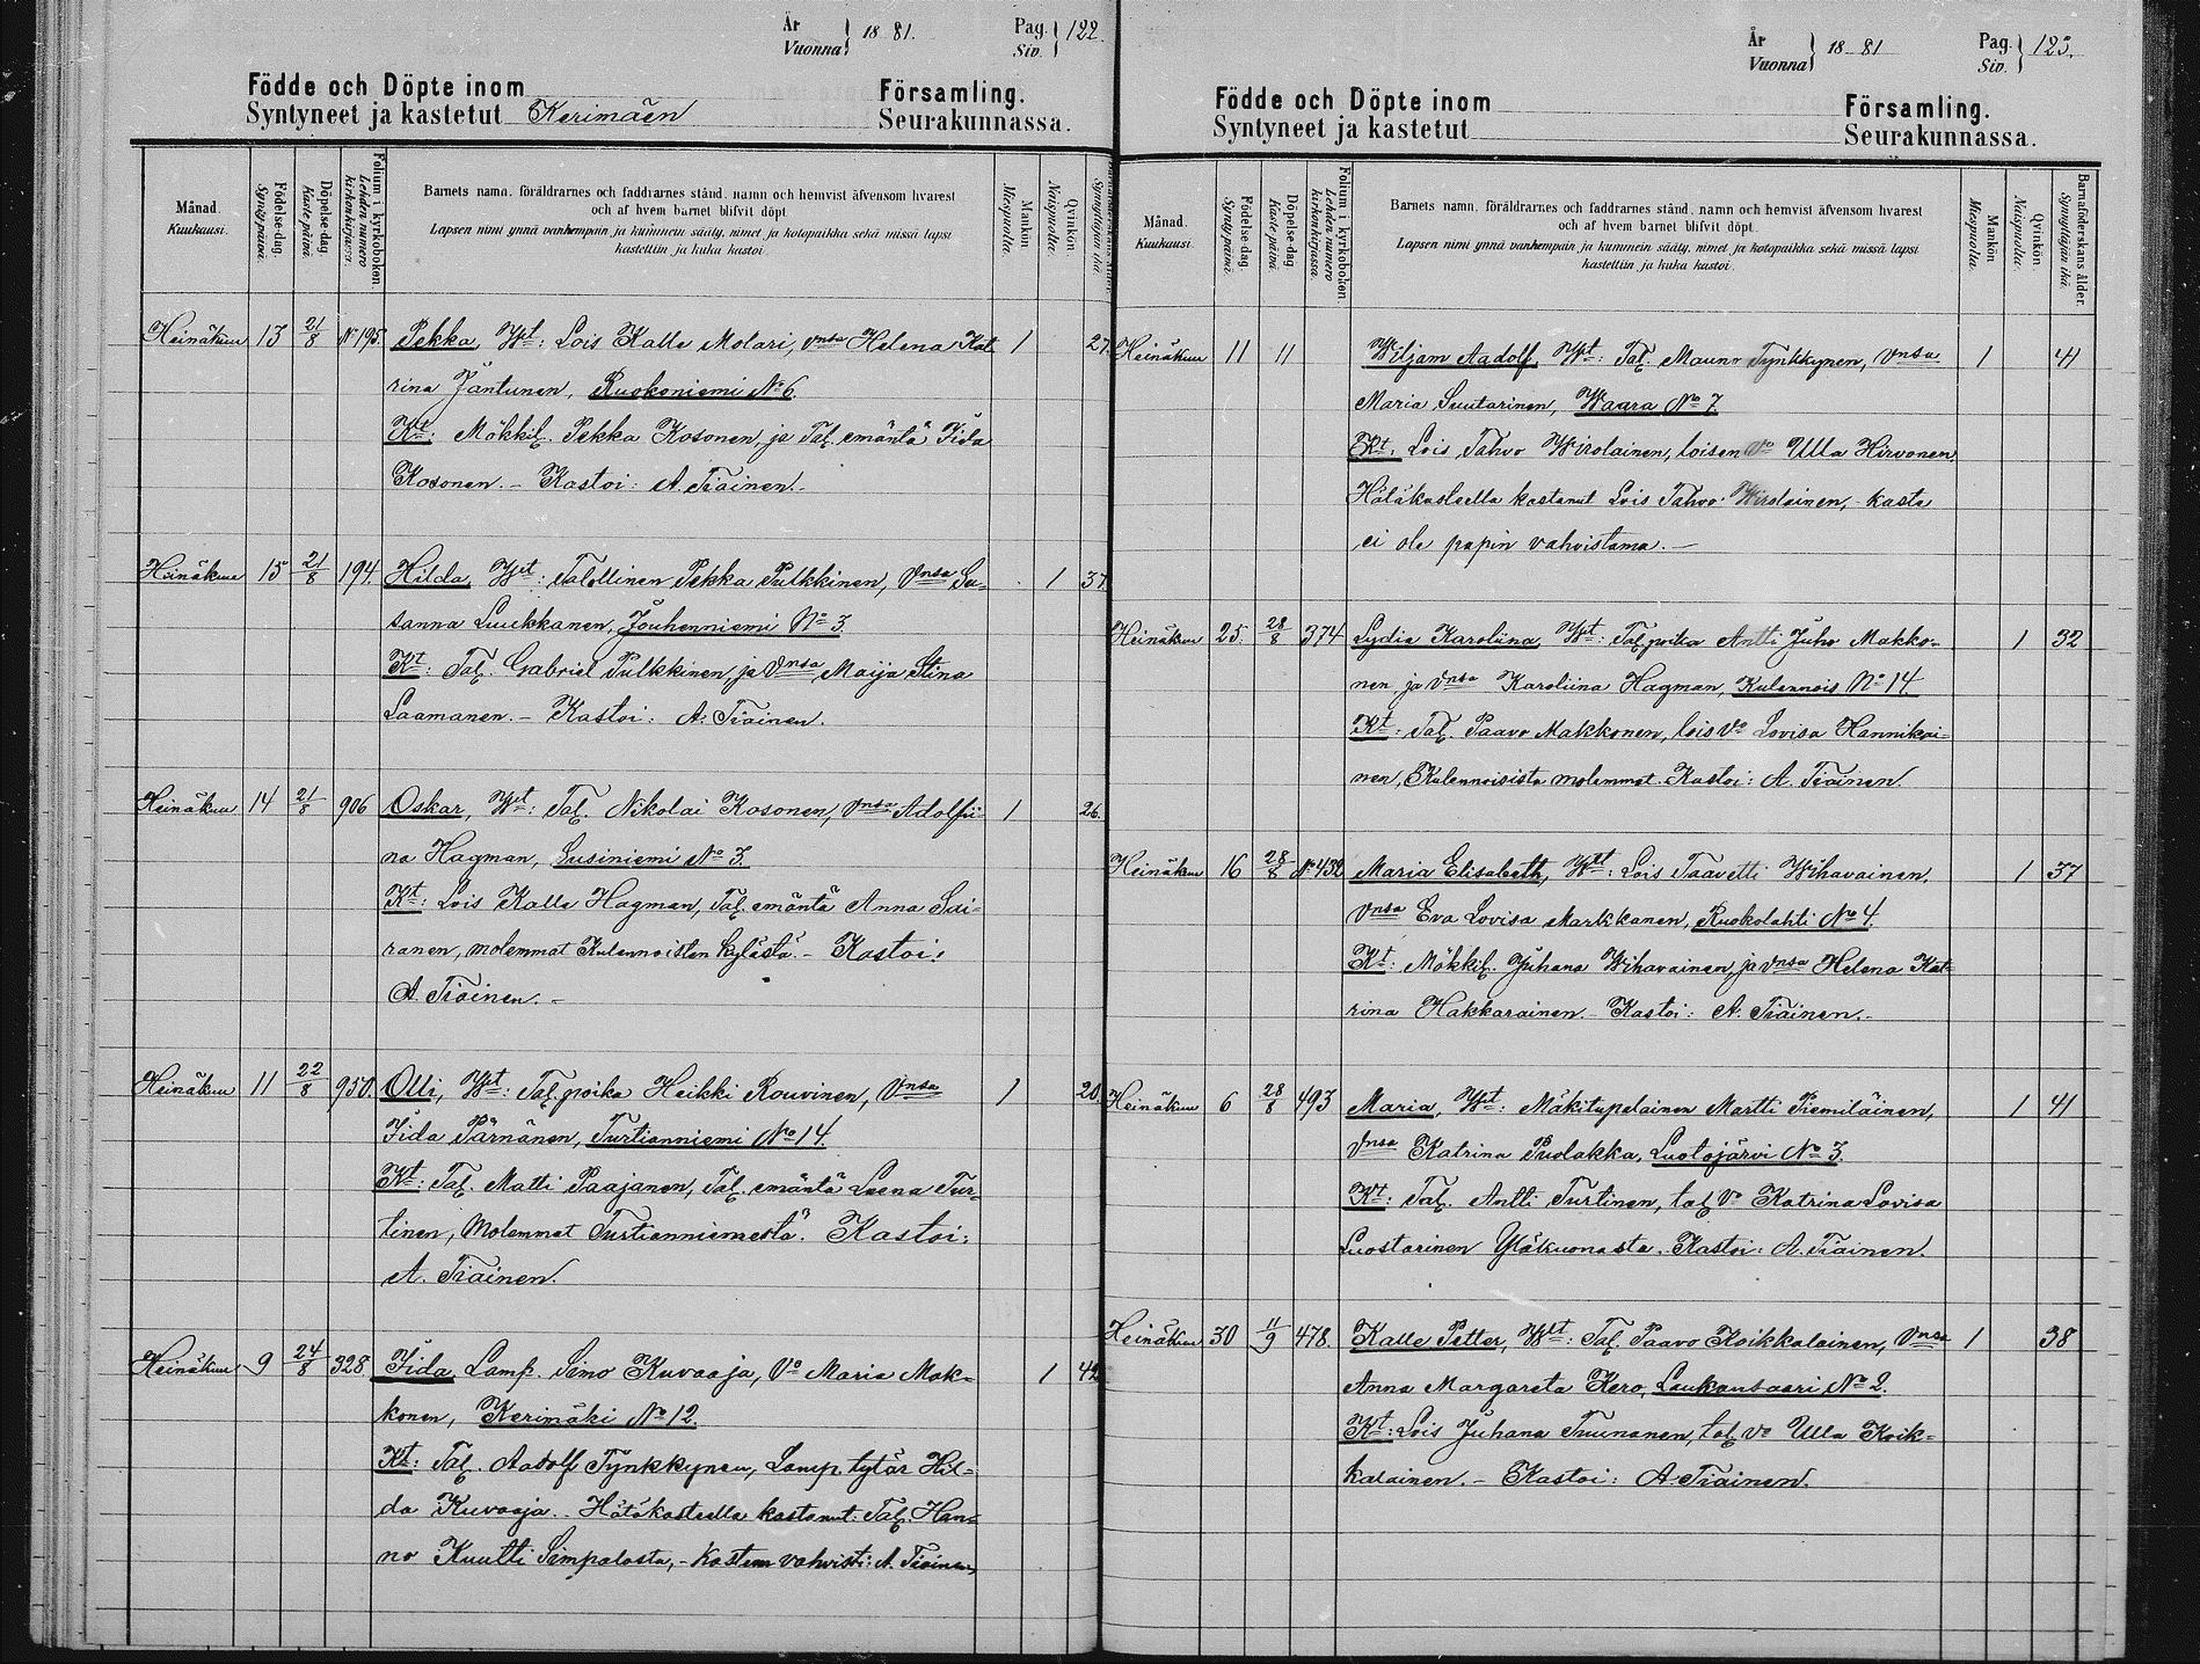 År Vuonna 18 81. Pag. Siv. 122.
Födde och Döpte inom Församling.
Syntyneet ja kastetut Kerimäen Seurakunnassa.
Månad. Kuukausi.
Födelse-dag. Syntypäivä.
Döpelse-dag. Kastepäivä.
Folium i kyrkoboken. Lehden numero kirkonkirjassa.
Barnets namn, föräldrarnes och faddrarnes stånd, namn och hemvist äfvensom hvarest
och af hvem barnet blifvit döpt
Lapsen nimi ynnä vanhempain ja kummein sääty, nimet ja kotopaikka sekä missä lapsi
kastettiin ja kuka kastoi
Mankön Miespuolia.
Qvinkön. Naispuolia.
Synnyttäjän ikä.
Heinäkuu 13 21/8 No 195. Pekka, Wt: Lois Kalle Molari, vnsa Helena Kat- 1 27.
rina Jantunen, Ruokoniemi No 6.
Kt: Mökkil. Pekka Kosonen, ja Tal. emäntä Fida
Kosonen. - Kastoi: A. Tiainen. -
Heinäkuu 15 21/8 194. Hilda, Wt: Talollinen Pekka Pulkkinen, Vnsa Su- 1 37.
sanna Luukkanen, Jouhenniemi No 3.
Kt: Tal. Gabriel Pulkkinen, ja Vnsa Maija Stina
Laamanen. - Kastoi: A. Tiainen.
Heinäkuu 14 21/8 906 Oskar, Wt: Tal. Nikolai Kosonen, Vnsa Adolfii- 1 26.
na Hagman, Susiniemi No 3.
Kt: Lois Kalle Hagman, Tal. emäntä Anna Sai-
ranen, molemmat Kulennoisten kylästä. - Kastoi:
A. Tiainen. -
Heinäkuu 11 22/8 950. Olli, Wt: Tal. poika Heikki Rouvinen, Vnsa 1 20.
Fida Pärnänen, Turtianniemi No 14.
Kt: Tal. Matti Paajanen, Tal. emäntä Leena Tur-
tinen, Molemmat Turtianniemestä. Kastoi:
A. Tiainen.
Heinäkuu 9 24/8 328. Fida, Lamp. Simo Kuvaaja, Vo Maria Mak- 1 42
konen, Kerimäki No 12.
Kt: Tal. Aadolf Tynkkynen, Lamp. tytär Hil-
da Kuvaaja. Hätäkasteella kastanut: Tal. Han-
no Kuutti Simpalasta, - Kasteen vahvisti: A. Tiainen
År Vuonna 18 81 Pag. Siv. 123.
Födde och Döpte inom Församling.
Syntyneet ja kastetut Seurakunnassa.
Månad. Kuukausi.
Födelse-dag. Syntypäivä.
Döpelse-dag Kastepäivä.
Folium i kyrkoboken. Lehden numero kirkonkirjassa.
Barnets namn, föräldrarnes och faddrarnes stånd, namn och hemvist äfvensom hvarest
och af hvem barnet blifvit döpt.
Lapsen nimi ynnä vanhempain ja kummein sääty, nimet ja kotopaikka sekä missä lapsi
kastettiin ja kuka kastoi.
Mankön Miespuolia.
Qvinkön Naispuolia.
Barnaföderskans ålder. Synnyttäjän ikä.
Heinäkuu 11 11 Wiljam Aadolf, Wt: Tal. Mauno Tynkkynen, Vnsa 1 41
Maria Suutarinen, Waara No 7.
Kt: Lois Tahvo Wirolainen, loisen Vo Ulla Hirvonen.
Hätäkasteella kastanut Lois Tahvo Wirolainen, - kaste
ei ole papin vahvistama. -
Heinäkuu 25. 28/8 374 Lydia Karoliina, Wt: Tal. poika Antti Juho Makko- 1 32
nen, ja Vnsa Karoliina Hagman, Kulennois No 14
Kt: Tal. Paavo Makkonen, lois Vo Lovisa Hannikai-
nen, Kulennoisista molemmat. Kastoi: A. Tiainen.
Heinäkuu 16 28/8 No 432 Maria Elisabeth, Wt: Lois Taavetti Wihavainen, 1 37
Vnsa Eva Lovisa Markkanen, Ruokolahti No 4.
Kt: Mökkil. Juhana Wihavainen, ja Vnsa Helena Kat-
rina Hakkarainen. - Kastoi: A. Tiainen. -
Heinäkuu 6 28/8 493 Maria, Wt: Mäkitupalainen Martti Piemiläinen, 1 41
Vnsa Katrina Puolakka, Luotojärvi No 3.
Kt: Tal. Antti Turtinen, tal. Vo Katrina Lovisa
Luostarinen Yläkuonasta. Kastoi: A. Tiainen.
Heinäkuu 30 11/9 478. Kalle Petter, Wt: Tal. Paavo Koikkalainen, Vnsa 1 38
Anna Margareta Kero, Laukansaari No 2.
Kt: Lois Juhana Tuunanen, tal. Vo Ulla Koik-
kalainen. - Kastoi: A. Tiainen.